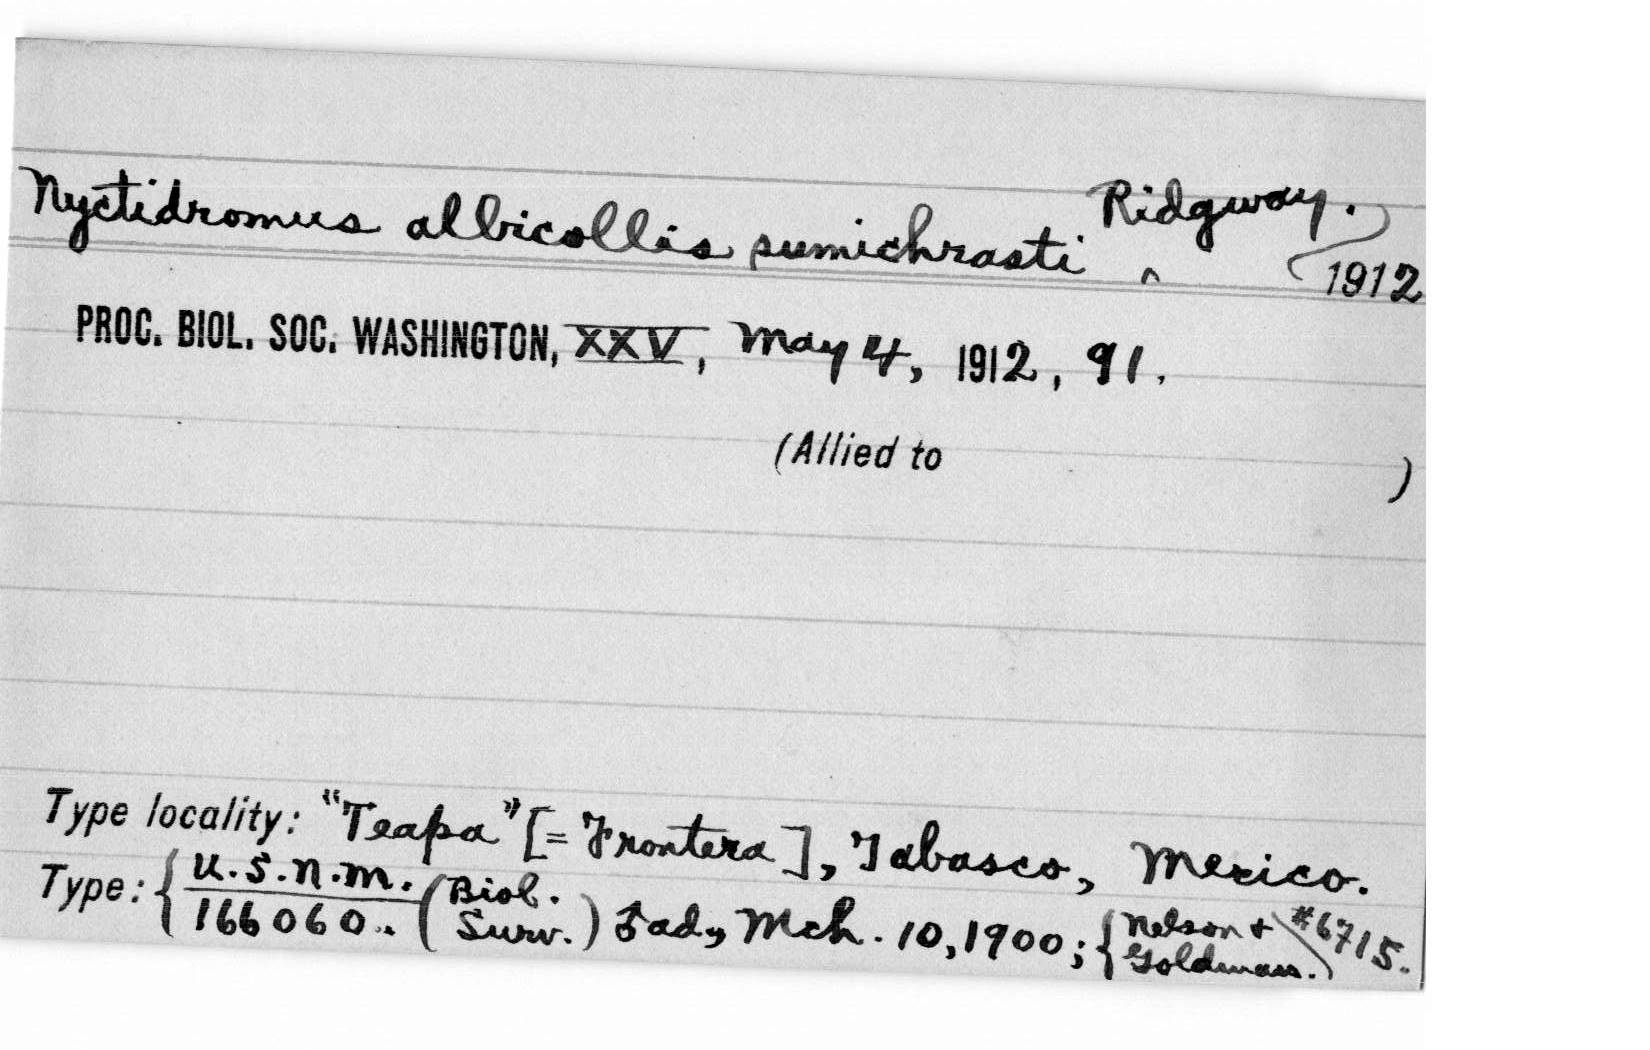 Nyctidromus albicollis sumichrasti ^ Ridgway.
1912
PROC. BIOL. SOC. WASHINGTON, XXV, May 4, 1912, 91.
(Allied to )
Type locality: "Teapa" [= Frontera], Tabasco, Mexico.
Type: { U.S.N.M. 166060. (Biol. Surv.) ♂ad, Mch. 10, 1900; { Nelson & Goldman. ) #6715.